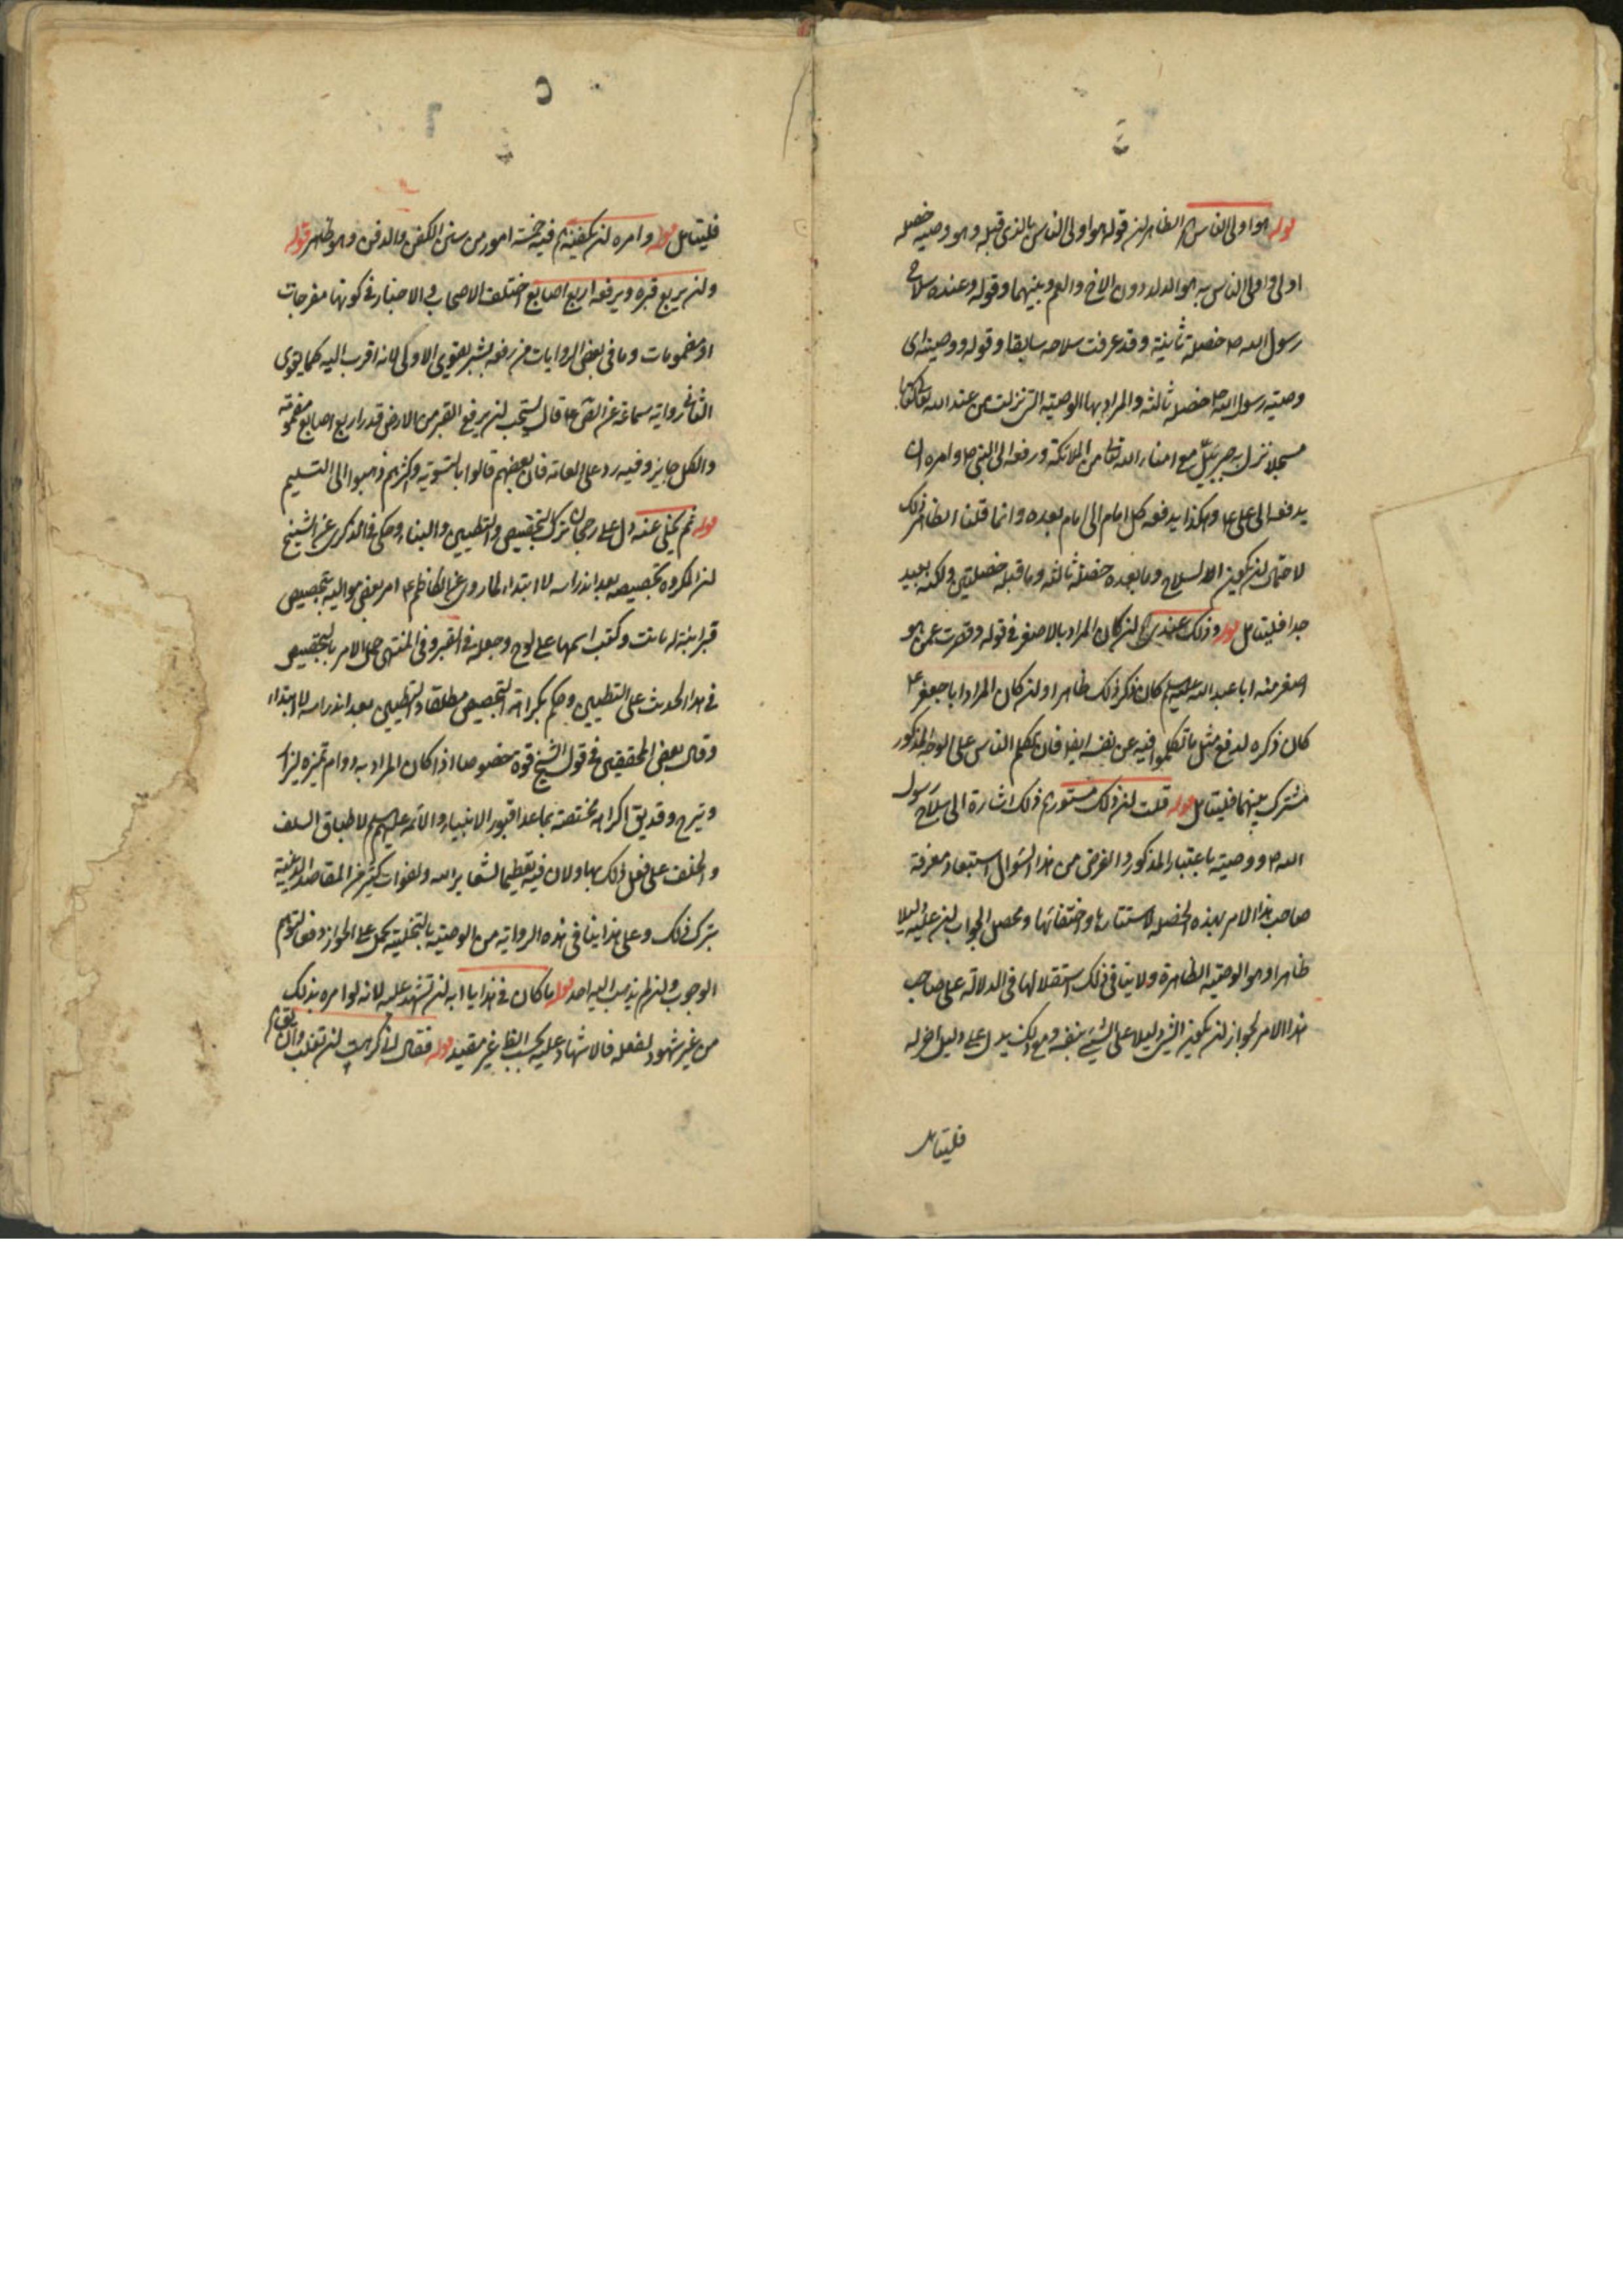 قوله هو اولى الناس اه الظاهر لن قوله هو اولى الناس بالذى قبله وهو وصيه خصلة
اولى واولى الناس به هو الولد دون الاخ والعم وبينهما وقوله وعنده سلاح
رسول الله ص خصلة ثانية وقد عرفت سلاحه سابقا وقوله ووصيته اى
وصية رسول الله ص خصلة ثالثة والمراد بها الوصية التى نزلت من عند الله كتابا
مسجلا نزل به جبرئيل مع امناء الله تعالى من الملائكة ورفعه الى النبى ص وامره ان
يدفعه الى على ع وهكذا يدفعه كل امام الى امام بعده وانما قلنا الظاهر ذلك
لاحتمال لن يكون السلاح وما بعده خصلة ثالثة وما قبله خصلتين ولكنه بعيد
جدا فليتامل قوله وذلك عندى اه لن كان المراد بالاصغر فى قوله وقصرت عمن هو
اصغر منه ابا عبد الله عليه السلم كان ذكر ذلك ظاهرا ولن كان المراد ابا جعفر ع
كان ذكره لدفع مثل ما تكلموا فيه عن نفسه ايضا فان تكلم الناس على الوجه المذكور
مشترك بينهما فليتامل قوله قلت لن ذلك مستور اه ذلك اشارة الى سلاح رسول
الله ص ووصيته باعتبار المذكور والغرض من هذا السؤال استبعاد معرفة
صاحب هذا الامر بهذه الخصلة لاستتارها واختفائها ومحصل الجواب لن عليه دليلا
ظاهرا وهو الوصية الظاهرة ولا ينافى ذلك استقلالها فى الدلالة على صاحب
هذا الامر لجواز لن يكون الشئ دليلا على الشئ بنفسه ومع ذلك يدل على دليل اخر له
فليتامل
فليتامل قوله وامره لن يكفنه اه فيه خمسة امور من سنن الكفن والدفن وهو ظاهر قوله
ولن يربع قبره ويرفعه اربع اصابع اختلف الاصحاب والاخبار فى كونها مفرجات
او مضمومات وما فى بعض الروايات من رفعه بشبر يقوى الاولى لانه اقرب اليه كما يقوى
الثانى رواية سماعة عن الص ع قال يستحب لن يرفع القبر من الارض قدر اربع اصابع مضمومة
والكل جايز وفيه رد على العامة فان بعضهم قالوا بالتسوية واكثرهم ذهبوا الى التسنيم
قوله ثم يخلى عنه دل على رجحان ترك التجصيص والتطيين والبناء وحكى فى الذكرى عن الشيخ
لن المكروه تجصيصه بعد اندراسه لا ابتداء لما روى عن الكاظم ع امر بعض مواليه بتجصيص
قبر ابنة له ماتت وكتب اسمها على لوح وجعله فى القبر وفى المنتهى حمل الامر بالتجصيص
فى هذا الحديث على التطيين وحكم بكراهة التجصيص مطلقا والتطيين بعد اندراسه لا ابتداء
وقال بعض المحققين فى قول الشيخ قوة خصوصا اذا كان المراد به دوام تميزه ليزار
ويترحم وقد يق الكراهة مختصة بما عدا قبور الانبياء والائمة عليهم السلم لاطباق السلف
والخلف على فعل ذلك بها ولان فيه تعظيما لشعاير الله ولفوات كثير من المقاصد الدينية
بترك ذلك وعلى هذا ينافى هذه الرواية من الوصية بالتخلية يحمل على الجواز دفعا لتوهم
الوجوب ولن لم يذهب اليه احد قوله ما كان فى هذا يا ابه لن تشهد عليه لانه لو امره بذلك
من غير شهود لفعله فالاشهاد عليه بحسب الظاهر غير مفيد قوله فقال انى كرهت لن تغلب وان يقال